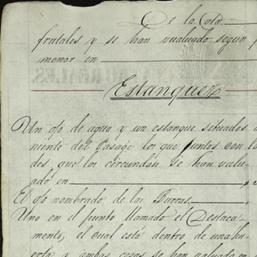 De la Cota
frutales y se han valuado segun p
menor en
Estanques
Un ojo de agua y un estanque situados a
niente del Pasaje los que juntos con la
des que los circundan. Se han valu
ado en
El ojo nombrado de los Burros
Uno en el punto llamado el Destaca
mento, el cual está dentro de una hu
erta, y ambas cosas se han valuado en